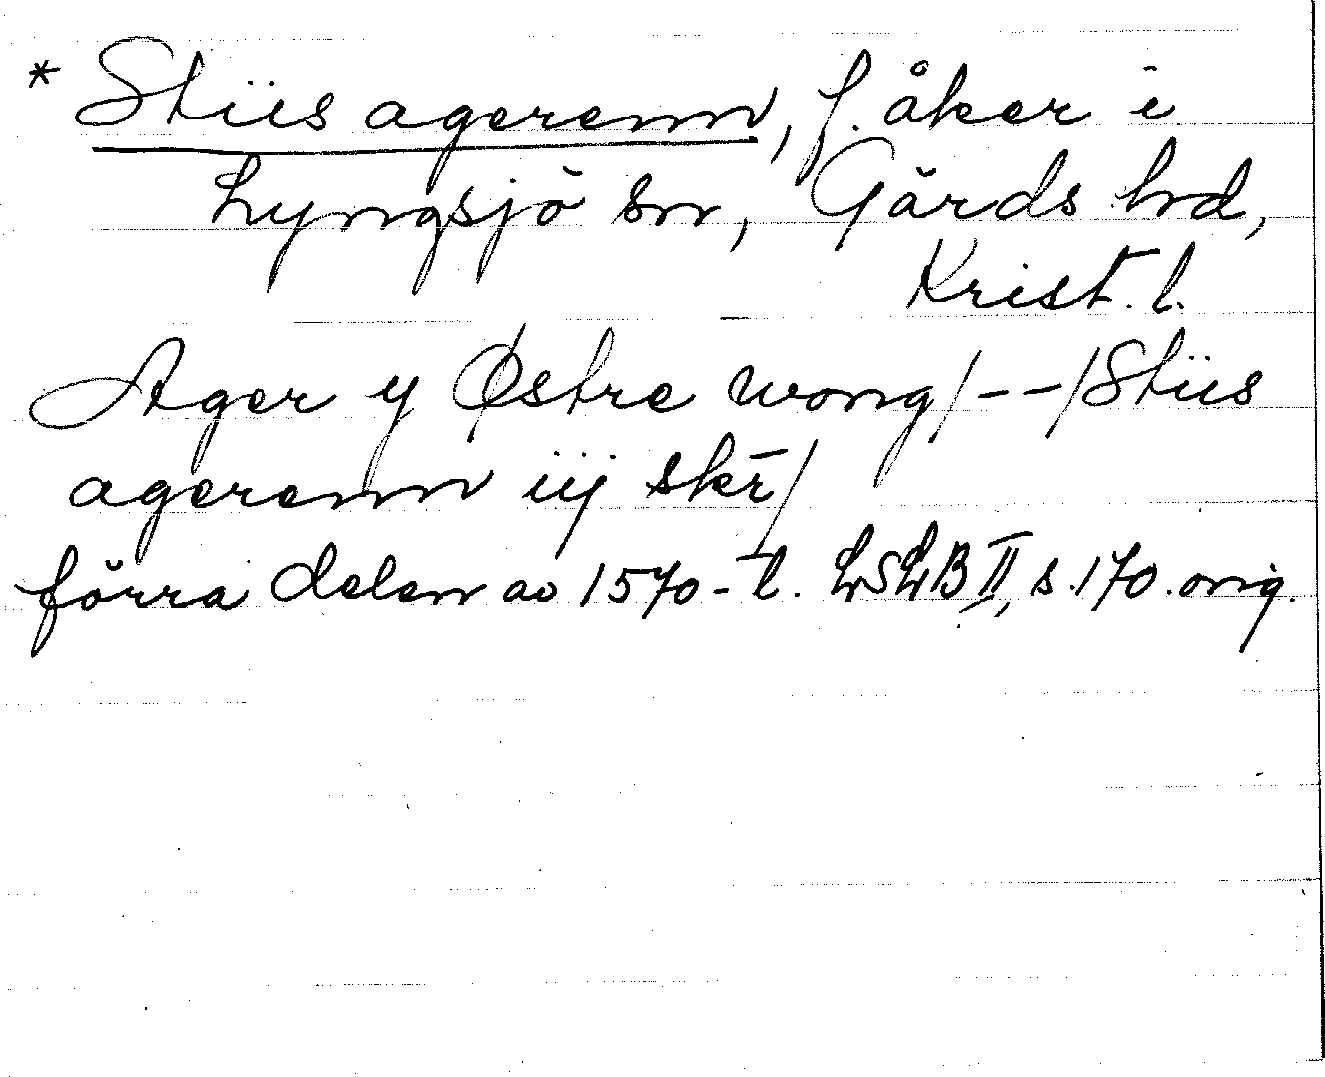 * Stiis agerenn, f. åker i
Lyngsjö sn, Gärds hd,
Krist. l.
Ager y Østre wong/--/Stiis
agerenn iij skr̄/
förra delen av 1570-t. LSLB II, s. 170. orig.